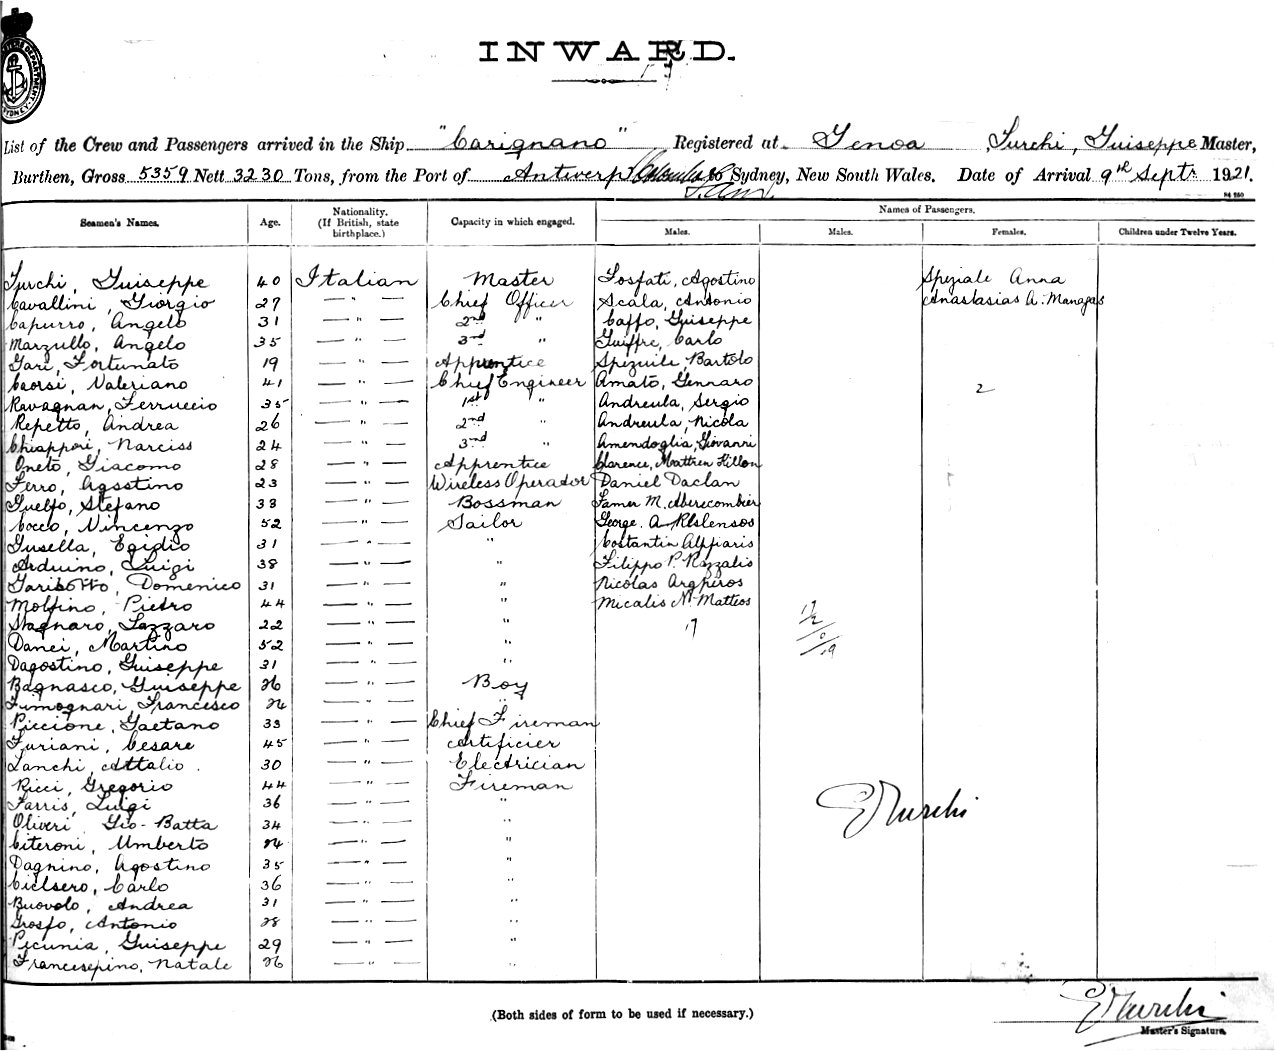 INWARD.
List of the Crew and Passengers arrived in the Ship "Carignano" Registered at Genoa, Turchi, Guiseppe Master,
Burthen, Gross 5359 Nett 3230 Tons, from the Port of Antwerp to Sydney, New South Wales. Date of Arrival 9th Septr 1921.
Seamen's Names. Age. Nationality. (If British, state birthplace.) Capacity in which engaged. Names of Passengers.
Males. Males. Females. Children under Twelve Years.
Turchi, Guiseppe 40 Italian Master Fosfati, Agostino Speziale Anna
Cavallini, Giorgio 27 — " — Chief Officer Scala, Antonio Anastasias A. Managas
Capurro, Angelo 31 — " — 2nd " Caffo, Guiseppe
Marzullo, Angelo 35 — " — 3rd " Guiffre, Carlo
Gari, Fortunato 19 — " — Apprentice Bartolo
Caorsi, Valeriano 41 — " — Chief Engineer Amato, Gennaro 2
Ravagnan, Ferruccio 35 — " — 1st " Andreula, Sergio
Repetto, Andrea 26 — " — 2nd " Andreula, Nicola
Chiappori, Narciss 24 — " — 3rd " Amendoglia, Giovanni
Oneto, Giacomo 28 — " — Apprentice Clarence, Mattren Killon
Ferro, Agostino 23 — " — Wireless Operator Daniel Daclan
Guelfo, Stefano 33 — " — Bossman James M. Abercombier
Cocco, Vincenzo 52 — " — Sailor George. A.
Gusella, Egidio 31 — " — " Costantin
Arduino, Luigi 38 — " — " Filippo P. Razzalis
Garibotto, Domenico 31 — " — " Nicolas Arghiros
Molfino, Pietro 44 — " — " Micalis N. Matteos
Stagnaro, Lazzaro 22 — " — " 17
Danei, Martino 52 — " — "
Dagostino, Guiseppe 31 — " — "
Bagnasco, Guiseppe 26 — " — Boy
Fumagnari, Francesco 24 — " — "
Piccione, Gaetano 33 — " — Chief Fireman
Furiani, Cesare 45 — " — Artificier
Lanchi, Attalio. 30 — " — Electrician
Ricci, Gregorio 44 — " — Fireman
Farris, Luigi 36 — " — "
Oliveri Gio-Batta 34 — " — "
Citeroni, Umberto 24 — " — "
Dagnino, Agostino 35 — " — "
Cielsero, Carlo 36 — " — "
Buovolo, Andrea 31 — " — "
Grosfo, Antonio 28 — " — "
Pecunia, Guiseppe 29 — " — "
Francesepino, Natale 26 — " — "
G Turchi
(Both sides of form to be used if necessary.)
G Turchi
Master's Signature.